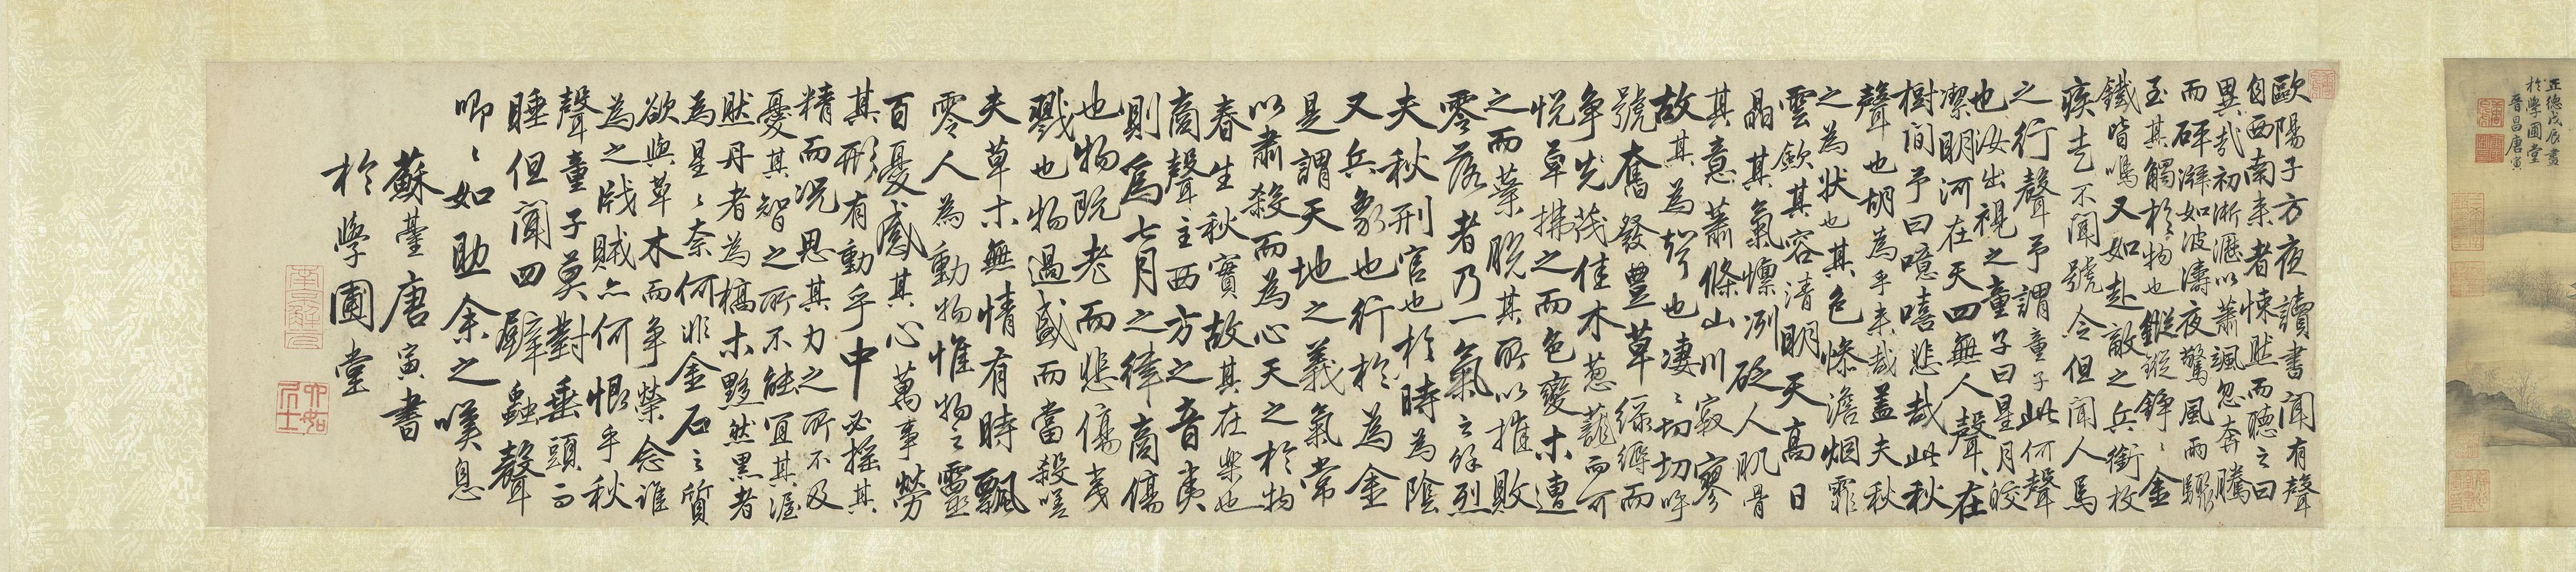 正德戊辰畫
於學圃堂
晉昌唐寅
歐陽子方夜讀書聞有聲
自西南来者悚然而聽之曰
異哉初淅瀝以蕭颯忽奔騰
而砰湃如波濤夜驚風雨驟
至其觸於物也鏦鏦錚〻金
鐵皆鳴又如赴敵之兵銜枚
疾走不聞號令但聞人馬
之行聲予謂童子此何聲
也汝出視之童子曰星月皎
潔明河在天四無人聲〻在
樹間予曰噫嘻悲哉此秋
聲也胡為乎来哉蓋夫秋
之為狀也其色慘澹烟霏
雲歛其容清明天高日
晶其氣慄冽砭人肌骨
其意蕭條山川寂寥
故其為聲也凄〻切切呼
號奮發豐草綠縟而
争先茂佳木葱蘢而可
悦草拂之而色變木遭
之而葉脱其所以摧敗
零落者乃一氣之餘烈
夫秋刑官也於時為陰
又兵象也行於為金
是謂天地之義氣常
以肅殺而為心天之於物
春生秋實故其在樂也
商聲主西方之音夷
則為七月之律商傷
也物既老而悲傷夷
戮也物過盛而當殺嗟
夫草木無情有時飄
零人為動物惟物之靈
百憂感其心萬事勞
其形有動乎中必摇其
精而况思其力之所不及
憂其智之所不能宜其渥
然丹者為槁木黟然黒者
為星〻奈何非金石之質
欲與草木而争榮念誰
為之戕賊亦何恨乎秋
聲童子莫對垂頭而
睡但聞四壁蟲聲
唧〻如助余之嘆息
蘇臺唐寅書
於學圃堂
南京解元
六如居士